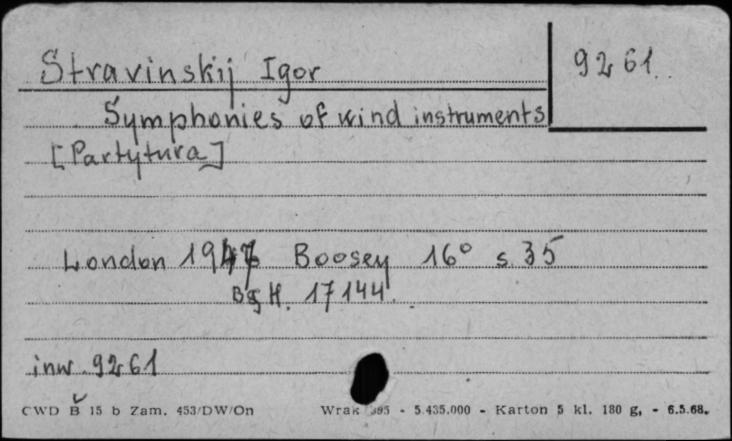 Stravinskij Igor
9261
Symphonies of wind instruments
[Partytura]
London Boosey 16° s. 35
B & H. 17144.
inw. 9261
CWD B 15 b Zam. 453/DW/On Wrak - 5.435.000 - Karton 5 kl. 180 g, - 6.5.68.